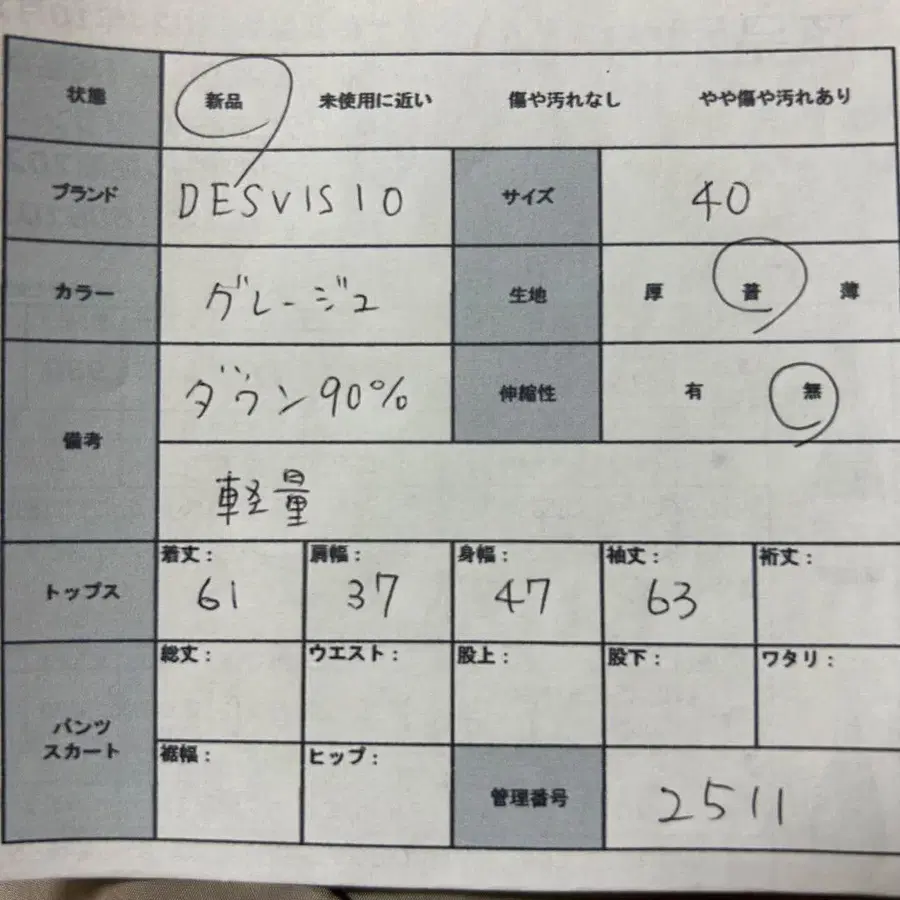 状態 新品 未使用に近い 傷や汚れなし やや傷や汚れあり
ブランド DESVISIO サイズ 40
カラー グレージュ 生地 厚 普 薄
備考 ダウン90% 伸縮性 有 無
軽量
トップス 着丈: 61 肩幅: 37 身幅: 47 袖丈: 63 裄丈:
パンツ スカート 総丈: ウエスト: 股上: 股下: ワタリ:
裾幅: ヒップ: 管理番号 2511